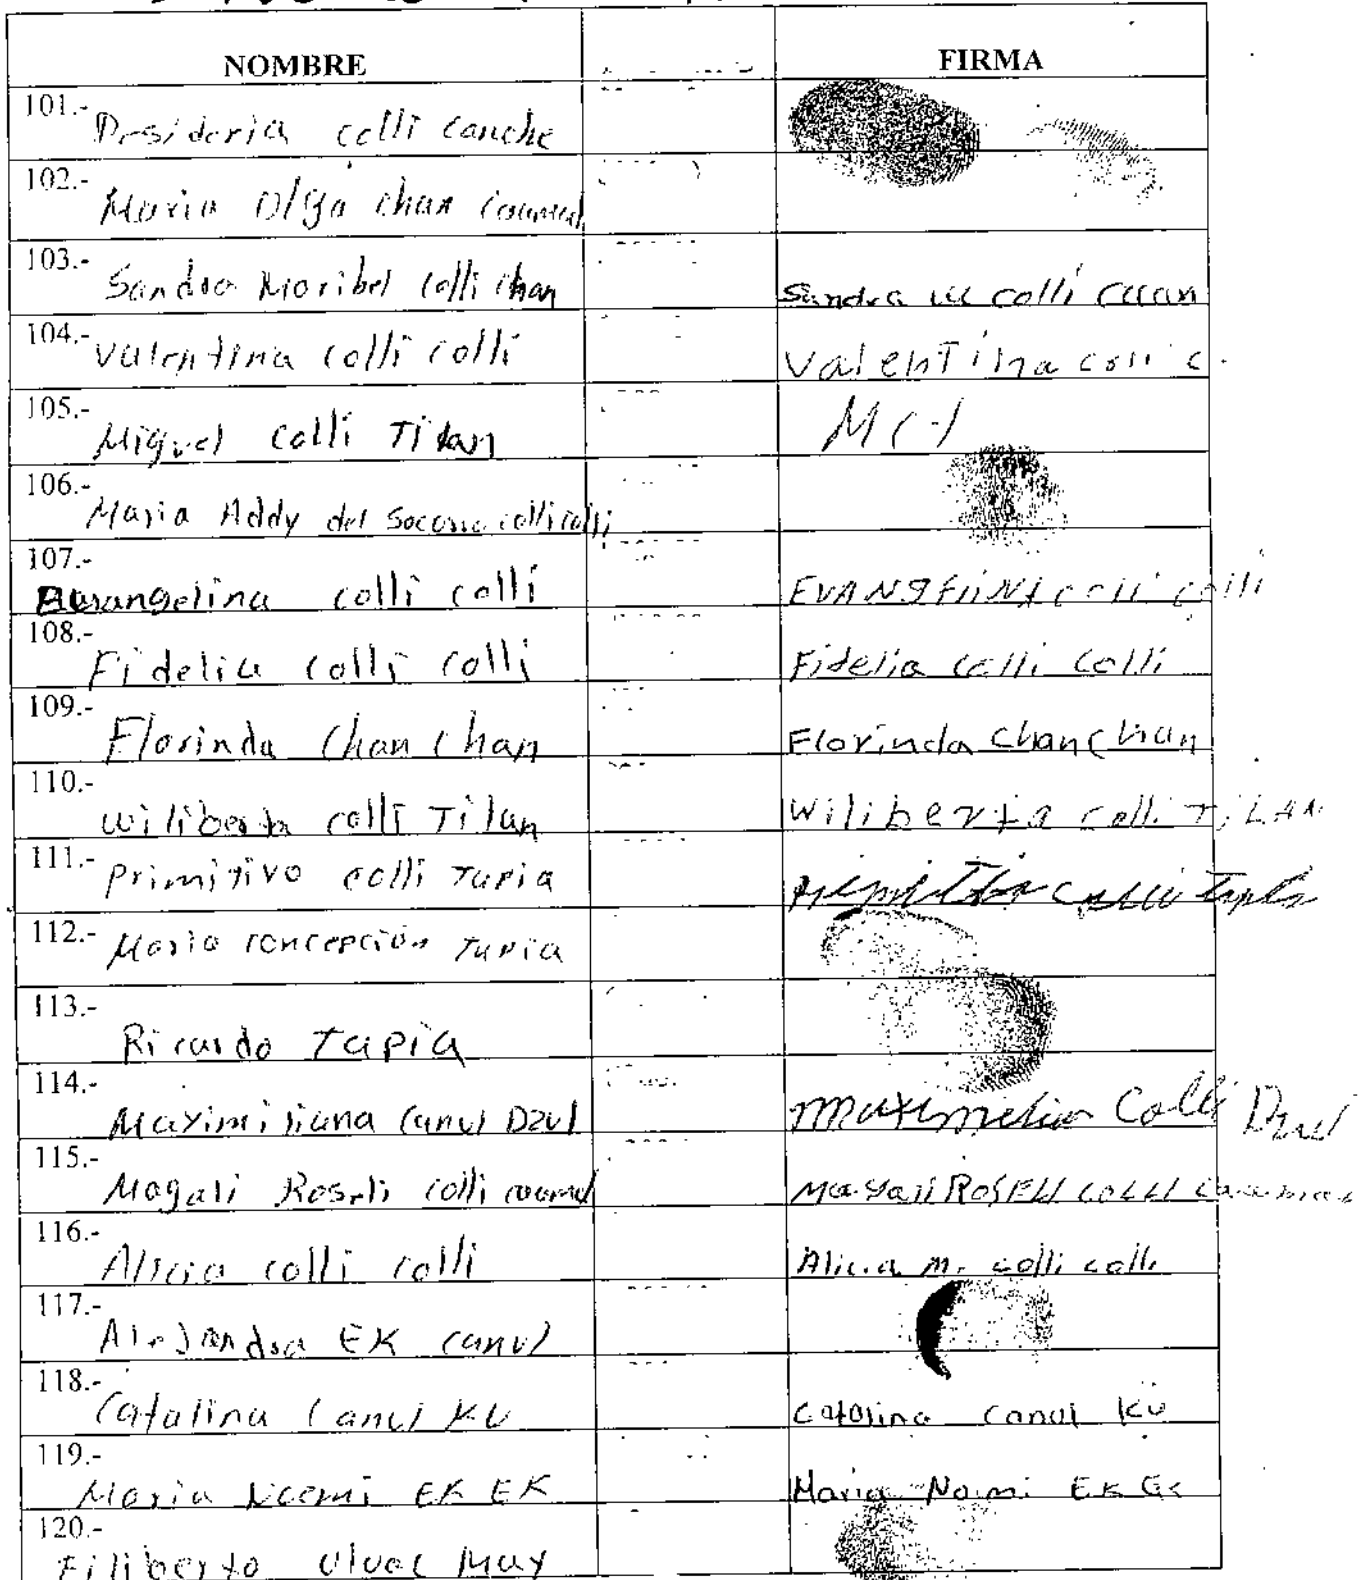 NOMBRE FIRMA
101.- Desideria colli canche
102.- Maria Olga chan
103.- Sandra Maribel colli chan Sandra M colli chan
104.- Valentina colli colli Valentina colli c.
105.- Miguel colli Tilan
106.- Maria Addy del Socorro colli colli
107.- Evangelina colli colli EVANgELiNA colli colli
108.- Fidelia colli colli Fidelia colli colli
109.- Florinda Chan Chan Florinda Chan Chan
110.- Wiliberta colli Tilan Wiliberta colli TiLAN
111.- Primitivo colli Tapia colli Tapia
112.- Maria concepción Tapia
113.- Ricardo Tapia
114.- Maximiliana Canul Dzul Colli Dzul
115.- Magali Roseli colli Magali ROSELI COLLI
116.- Alicia colli colli Alicia M. colli colli
117.- Alejandra EK canul
118.- Catalina Canul KU Catalina Canul Ku
119.- Maria Noemi EK EK Maria Noemi EK Ek
120.- Filiberto May